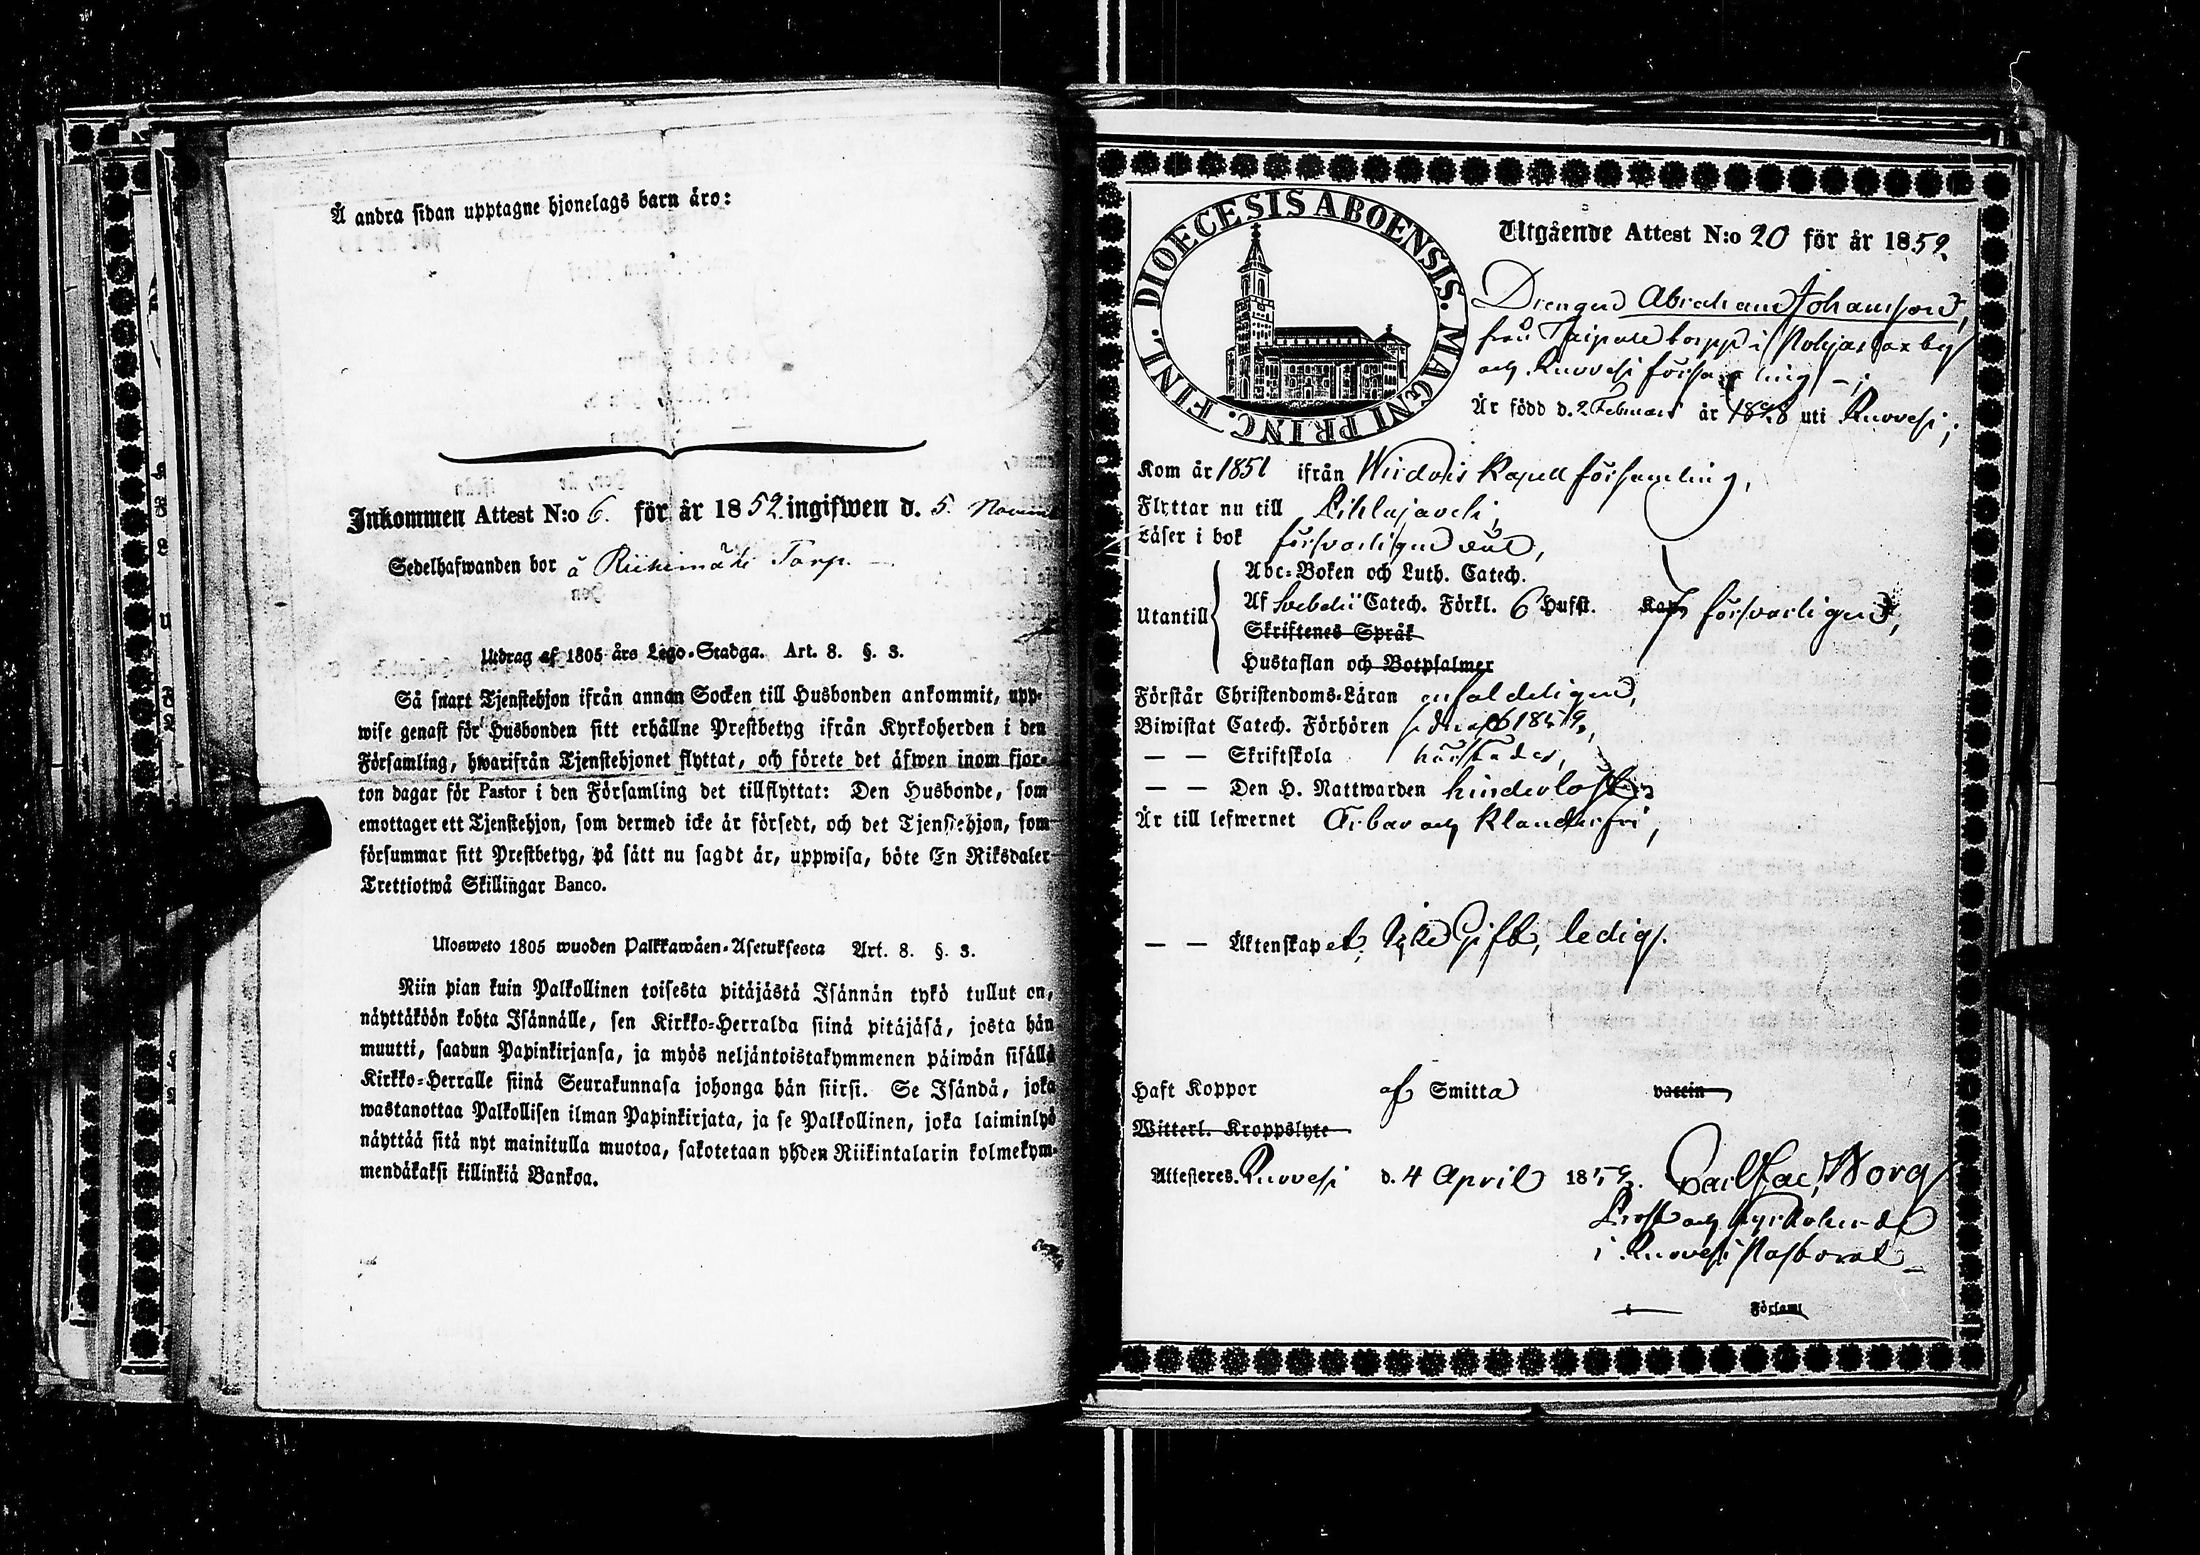 Å andra sidan upptagne hjonelags barn äro:
Inkommen Attest N:o 6. för år 1852. ingifwen d. 5.
Sedelhafwanden bor å Riihimäki Torp. —
Utdrag af 1805 års Lego-Stadga. Art. 8. §. 3.
Så snart Tjenstehjon ifrån annan Socken till Husbonden ankommit, upp-
wise genast för Husbonden sitt erhållne Prestbetyg ifrån Kyrkoherden i den
Församling, hwarifrån Tjenstehjonet flyttat, och förete det äfwen inom fjor-
ton dagar för Pastor i den Församling det tillflyttat: Den Husbonde, som
emottager ett Tjenstehjon, som dermed icke är försedt, och det Tjenstehjon, som
försummar sitt Prestbetyg, på sätt nu sagdt är, uppwisa, böte En Riksdaler
Trettiotwå Skillingar Banco.
Ulosweto 1805 wuoden Palkkawäen-Asetuksesta Art. 8. §. 3.
Niin pian kuin Palkollinen toisesta pitäjästä Isännän tykö tullut on,
näyttäköön kohta Isännälle, sen Kirkko-Herralda siinä pitäjäsä, josta hän
muutti, saadun Papinkirjansa, ja myös neljäntoistakymmenen päiwän sisällä
Kirkko-Herralle siinä Seurakunnasa johonga hän siirsi. Se Isändä, joka
wastanottaa Palkollisen ilman Papinkirjata, ja se Palkollinen, joka laiminlyö
näyttää sitä nyt mainitulla muotoa, sakotetaan yhden Riikintalarin kolmekym-
mendäkaksi killinkiä Bankoa.
DIOECESIS ABOENSIS. MAGNI PRINC. FINL.
Utgående Attest N:o 20 för år 1852
Drengen Abraham Johansson,
från Taipale torp i Pohjaslax by
och Ruovesi församling —;
Är född d. 2 Februari år 1828 uti Ruovesi;
Kom år 1851 ifrån Wirdois Kapell församling,
Flyttar nu till Pihlajavesi,
Läser i bok försvarligen
Abc-Boken och Luth. Catech.
Utantill Af Svebelii Catech. Förkl. 6 Hufst. Kap. försvarligen,
Skriftenes Språk
Hustaflan och Botpsalmer
Förstår Christendoms-Läran enfaldeligen,
Biwistat Catech. Förhören 1852,
— — Skriftskola
— — Den H. Nattwarden hinderlös
Är till lefwernet Ärbar och Klanderfri,
— — Äktenskapet, icke Gift, ledig.
Haft Koppor af Smitta vaccin
Witterl. Kroppslyte
Attesteres. Ruovesi d. 4 April 1852. Carl Jac. Borg
Prost och Kyrkoherde
i Ruovesi Pastorat —
i Församl